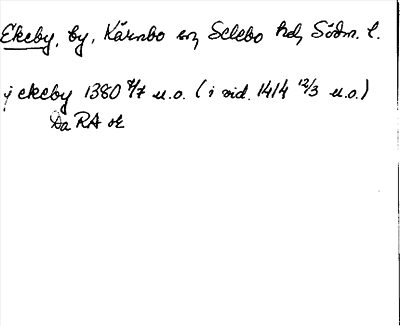 Ekeby, by, Kärnbo sn, Selebo hd, Södm. l.
j ekeby 1380 4/7 u.o. (i vid. 1414 12/3 u.o.)
Da RA or